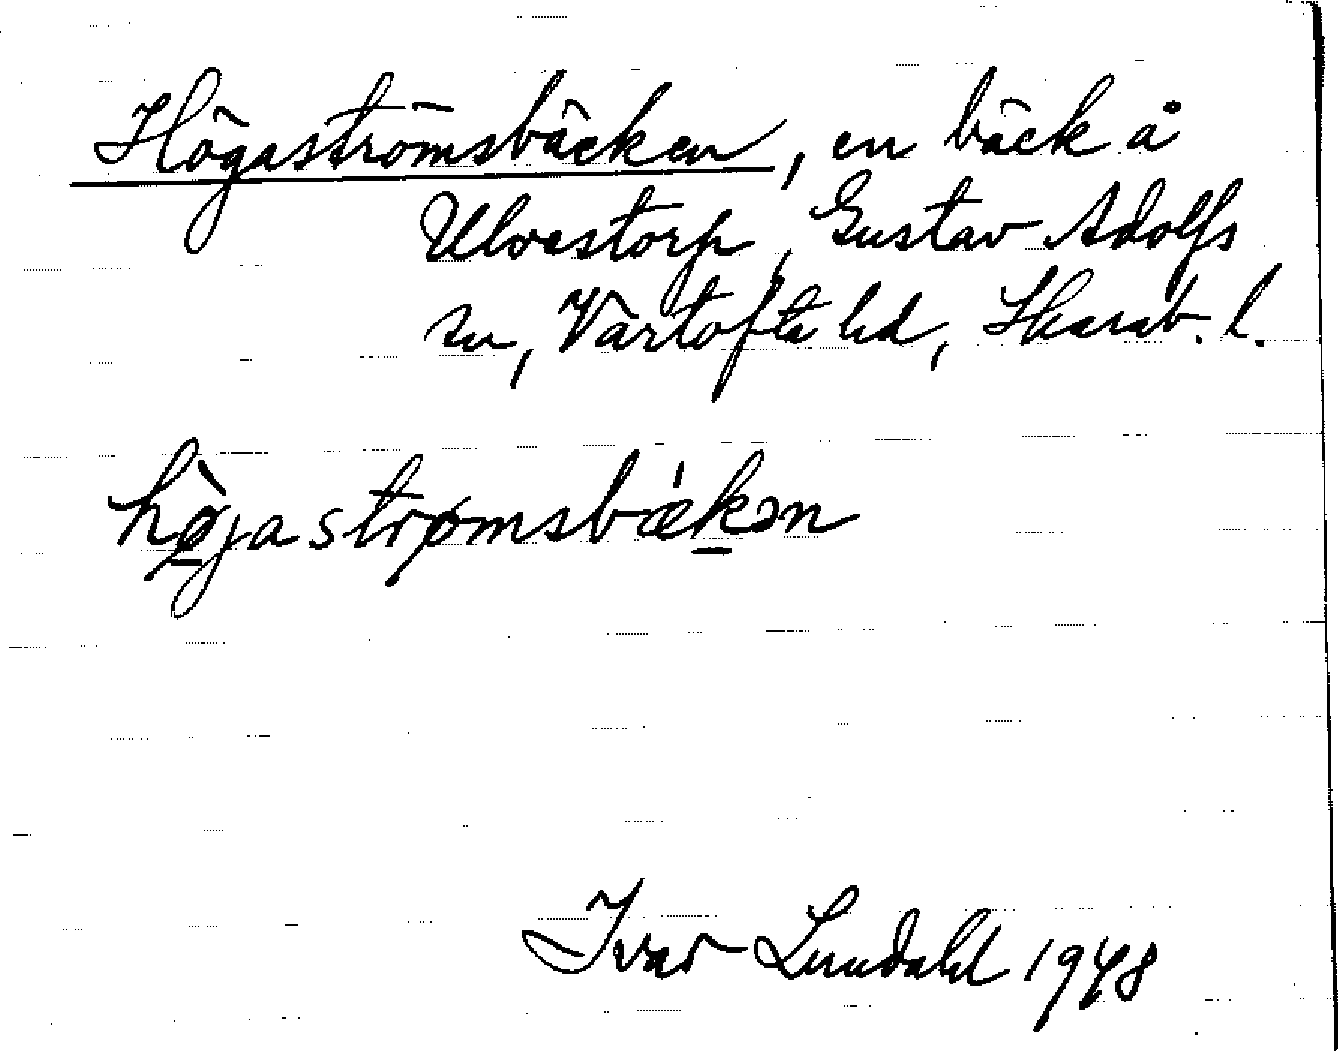 Högaströmsbäcken, en bäck å
Ulvestorp, Gustav Adolfs
sn, Vartofta hd, Skarab. l.
hø̀gastrømsbǽkən
Ivar Lundahl 1948